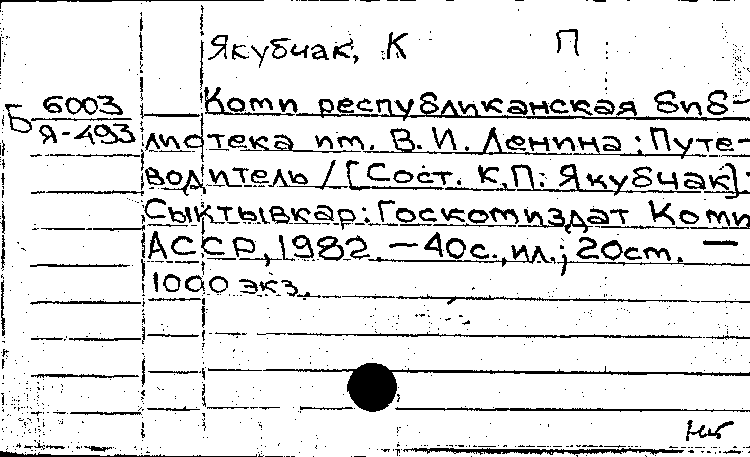 Якубчак, К П
Коми республиканская биб-
Б 6003
Я-493
лиотека им. В. И. Ленина : Путе-
водитель / [Сост. К. П. Якубчак].
Сыктывкар: Госкомиздат Коми
АССР, 1982. — 40с., ил.; 20см. —
1000 экз.